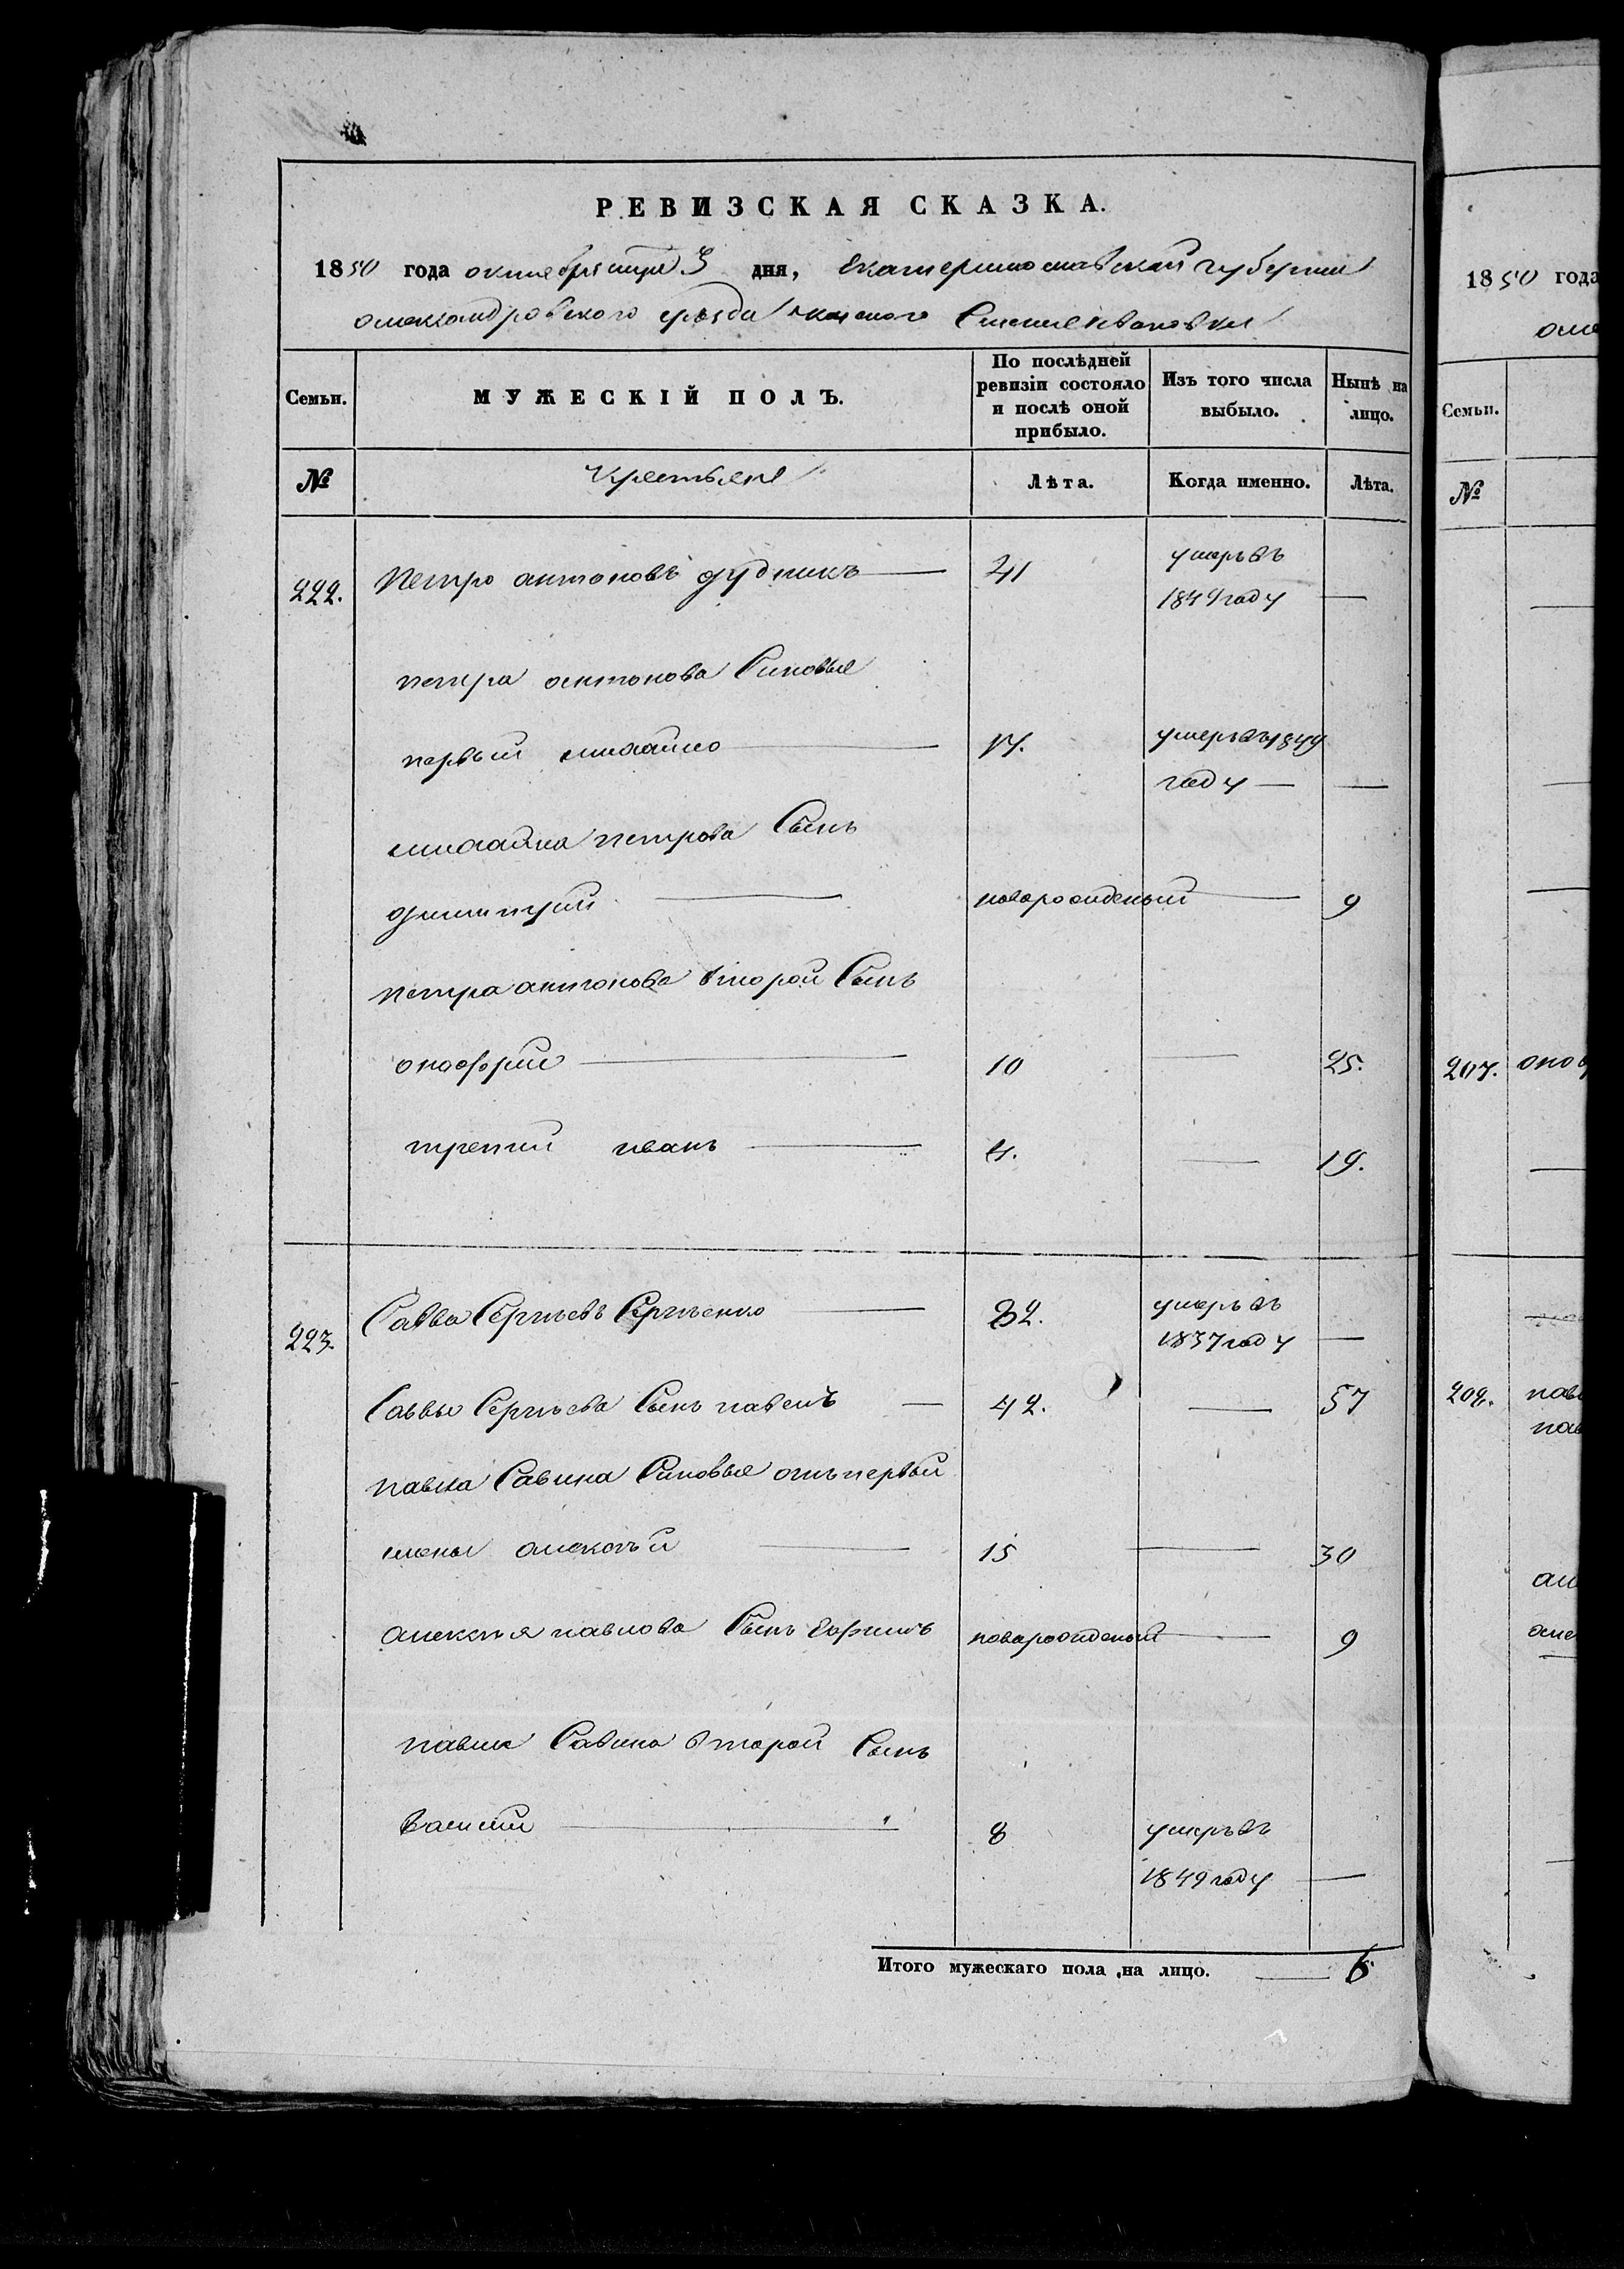 РЕВИЗСКАЯ СКАЗКА.
1850 года октября 3 дня, Екатеринославской губернии
александровского уезда
Семьи.
МУЖЕСКІЙ ПОЛЪ.
По послѣдней ревизіи состояло и послѣ оной прибыло.
Изъ того числа выбыло.
Нынѣ на лицо.
№
Крестьяне
Лѣта.
Когда именно.
Лѣта.
222. Петро антоновъ дудникъ — 41 умеръ въ
1849 году —
петра антонова Синовья
первый михайло — 17. умеръ въ 1849
году — —
михайла петрова Сынъ
димитрий — новорожденый — 9
петра антонова второй Сынъ
онофрий — 10 — 25.
третий иванъ — 4. — 19.
223. Савва Сергѣевъ Сергѣенко — 82. умеръ въ
1837 году —
Саввы Сергѣева Сынъ павелъ — 42. — 57
павла Савина Синовья отъ первый
жены алексѣй — 15 — 30
алексѣя павлова Сынъ Ефимъ новорожденый — 9
павла Савина второй Сынъ
василий — 8 умеръ въ
1849 году —
Итого мужескаго пола на лицо. — 6
1850 года
Семьи.
№
207.